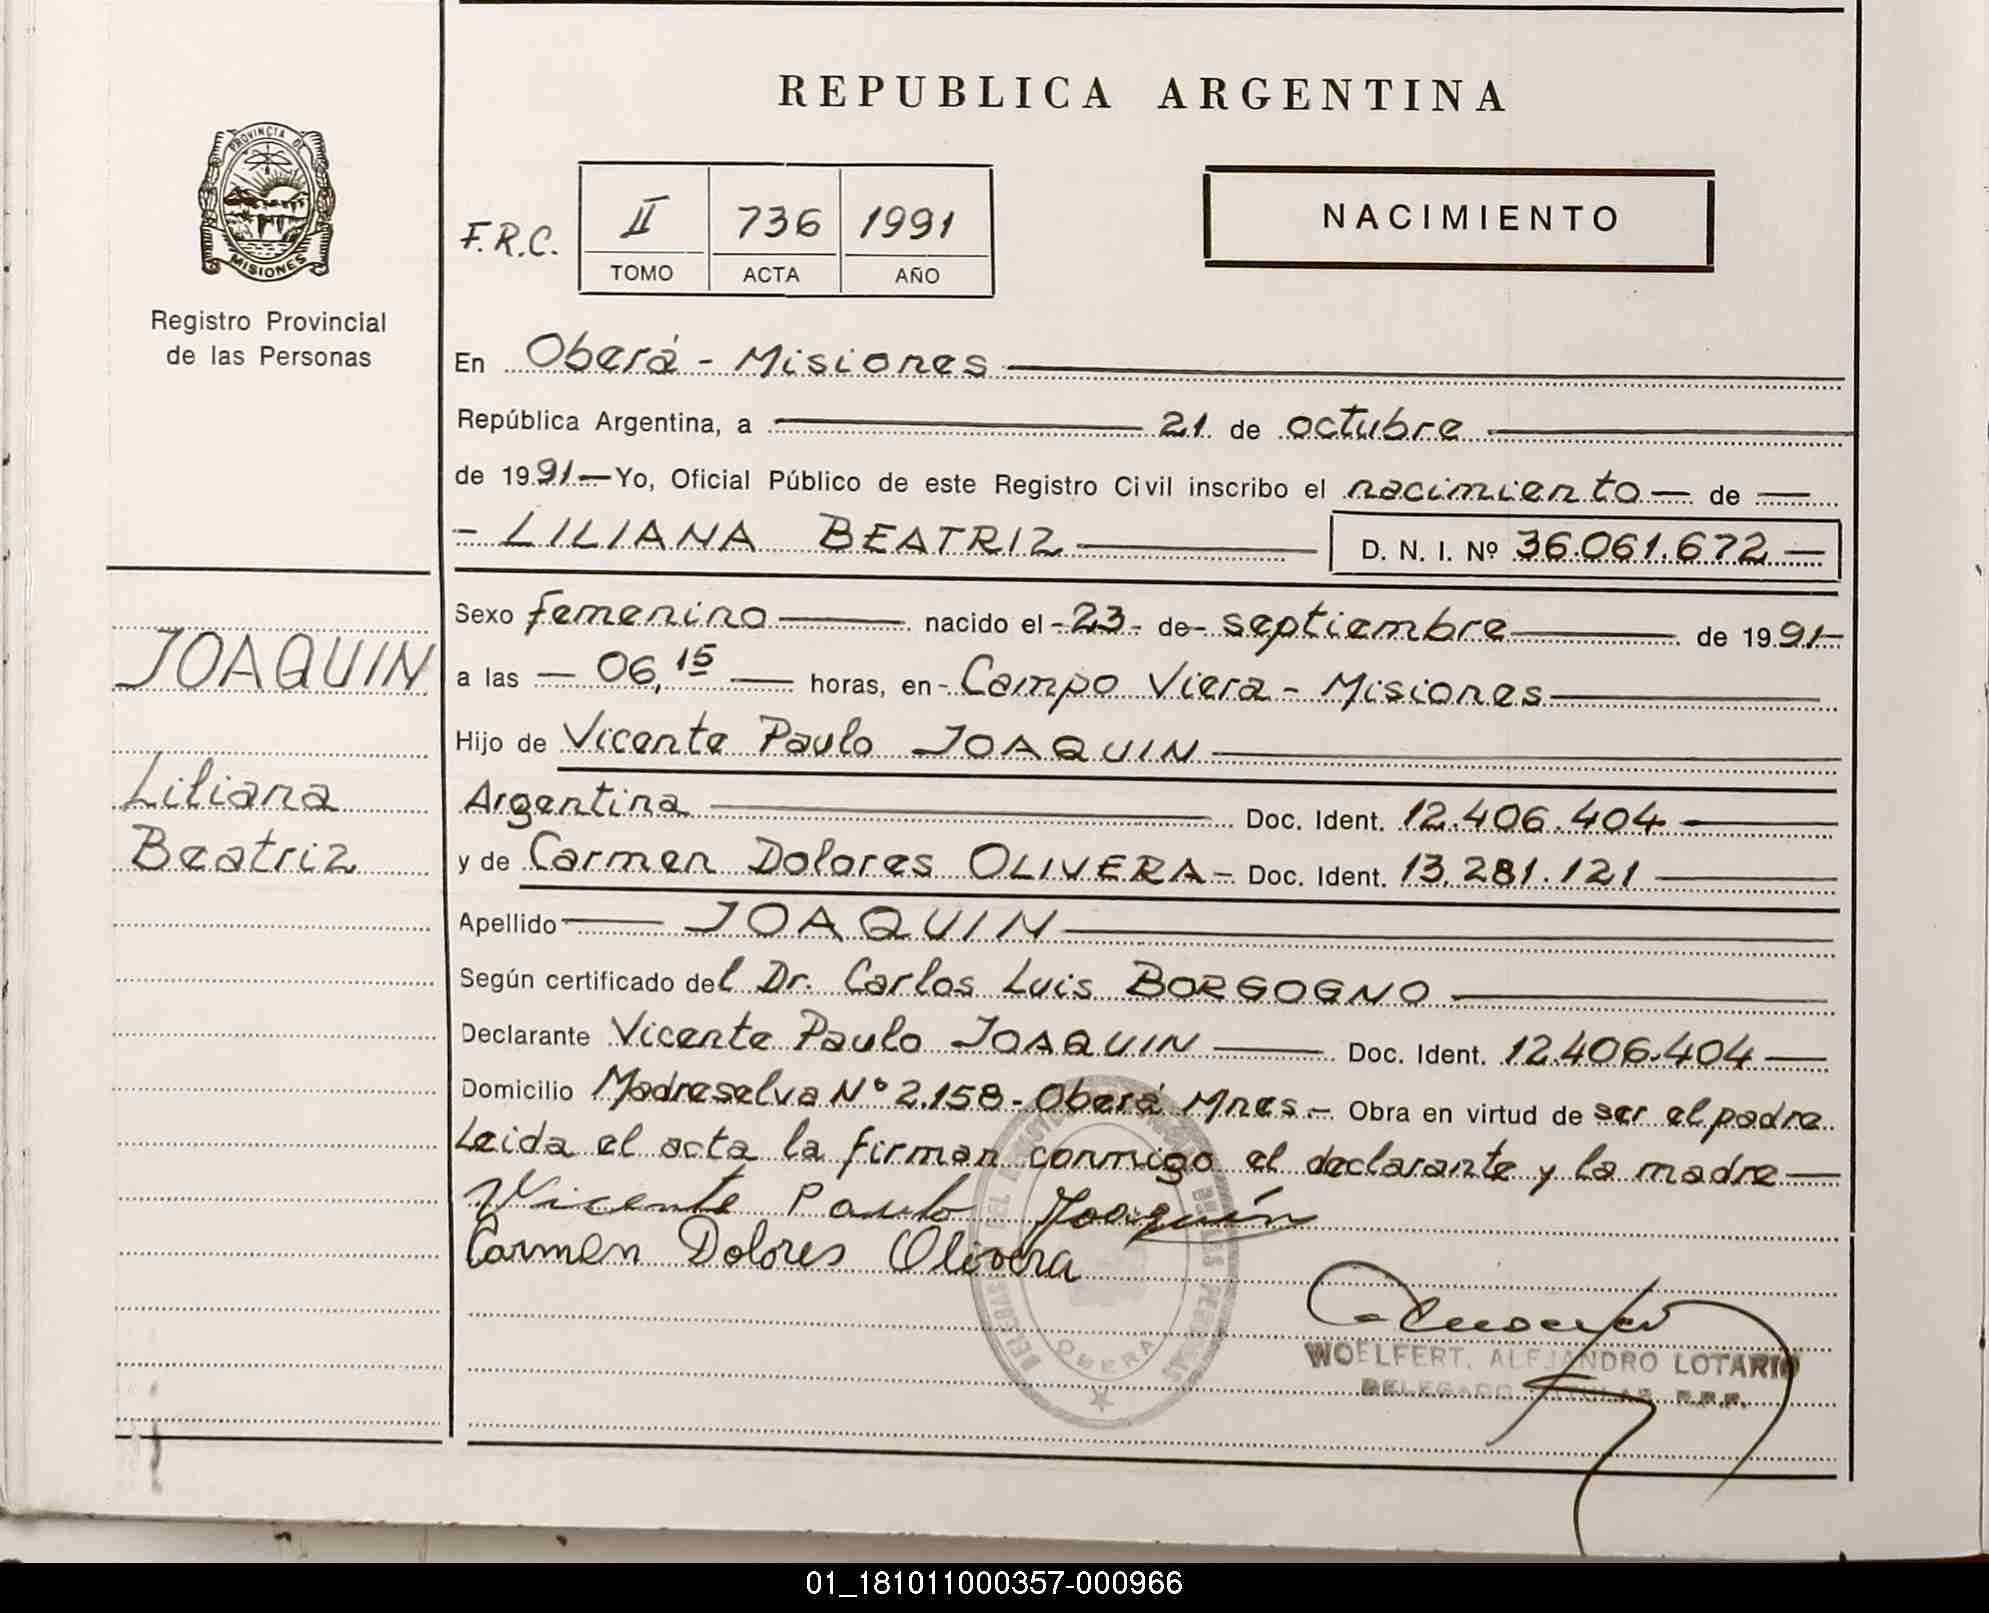 REPUBLICA ARGENTINA
PROVINCIA DE
MISIONES
Registro Provincial
de las Personas
F.R.C.
II 736 1991
TOMO ACTA AÑO
NACIMIENTO
En Oberá - Misiones
República Argentina, a 21 de octubre
de 1991 - Yo, Oficial Público de este Registro Civil inscribo el nacimiento - de -
- LILIANA BEATRIZ D. N. I. Nº 36.061.672 -
JOAQUIN
Liliana
Beatriz
Sexo femenino nacido el - 23 - de - septiembre de 1991 -
a las - 06,15 - horas, en - Campo Viera - Misiones
Hijo de Vicente Paulo JOAQUIN
Argentina Doc. Ident. 12.406.404 -
y de Carmen Dolores OLIVERA - Doc. Ident. 13.281.121
Apellido - JOAQUIN
Según certificado del Dr. Carlos Luis BORGOGNO
Declarante Vicente Paulo JOAQUIN - Doc. Ident. 12.406.404 -
Domicilio Madreselva Nº 2.158 - Oberá Mnes - Obra en virtud de ser el padre
Leida el acta la firman conmigo el declarante y la madre -
Vicente Paulo Joaquín
Carmen Dolores Olivera
OBERA
WOELFERT, ALEJANDRO LOTARIO
DELEGADO TITULAR R.P.P.
01_181011000357-000966